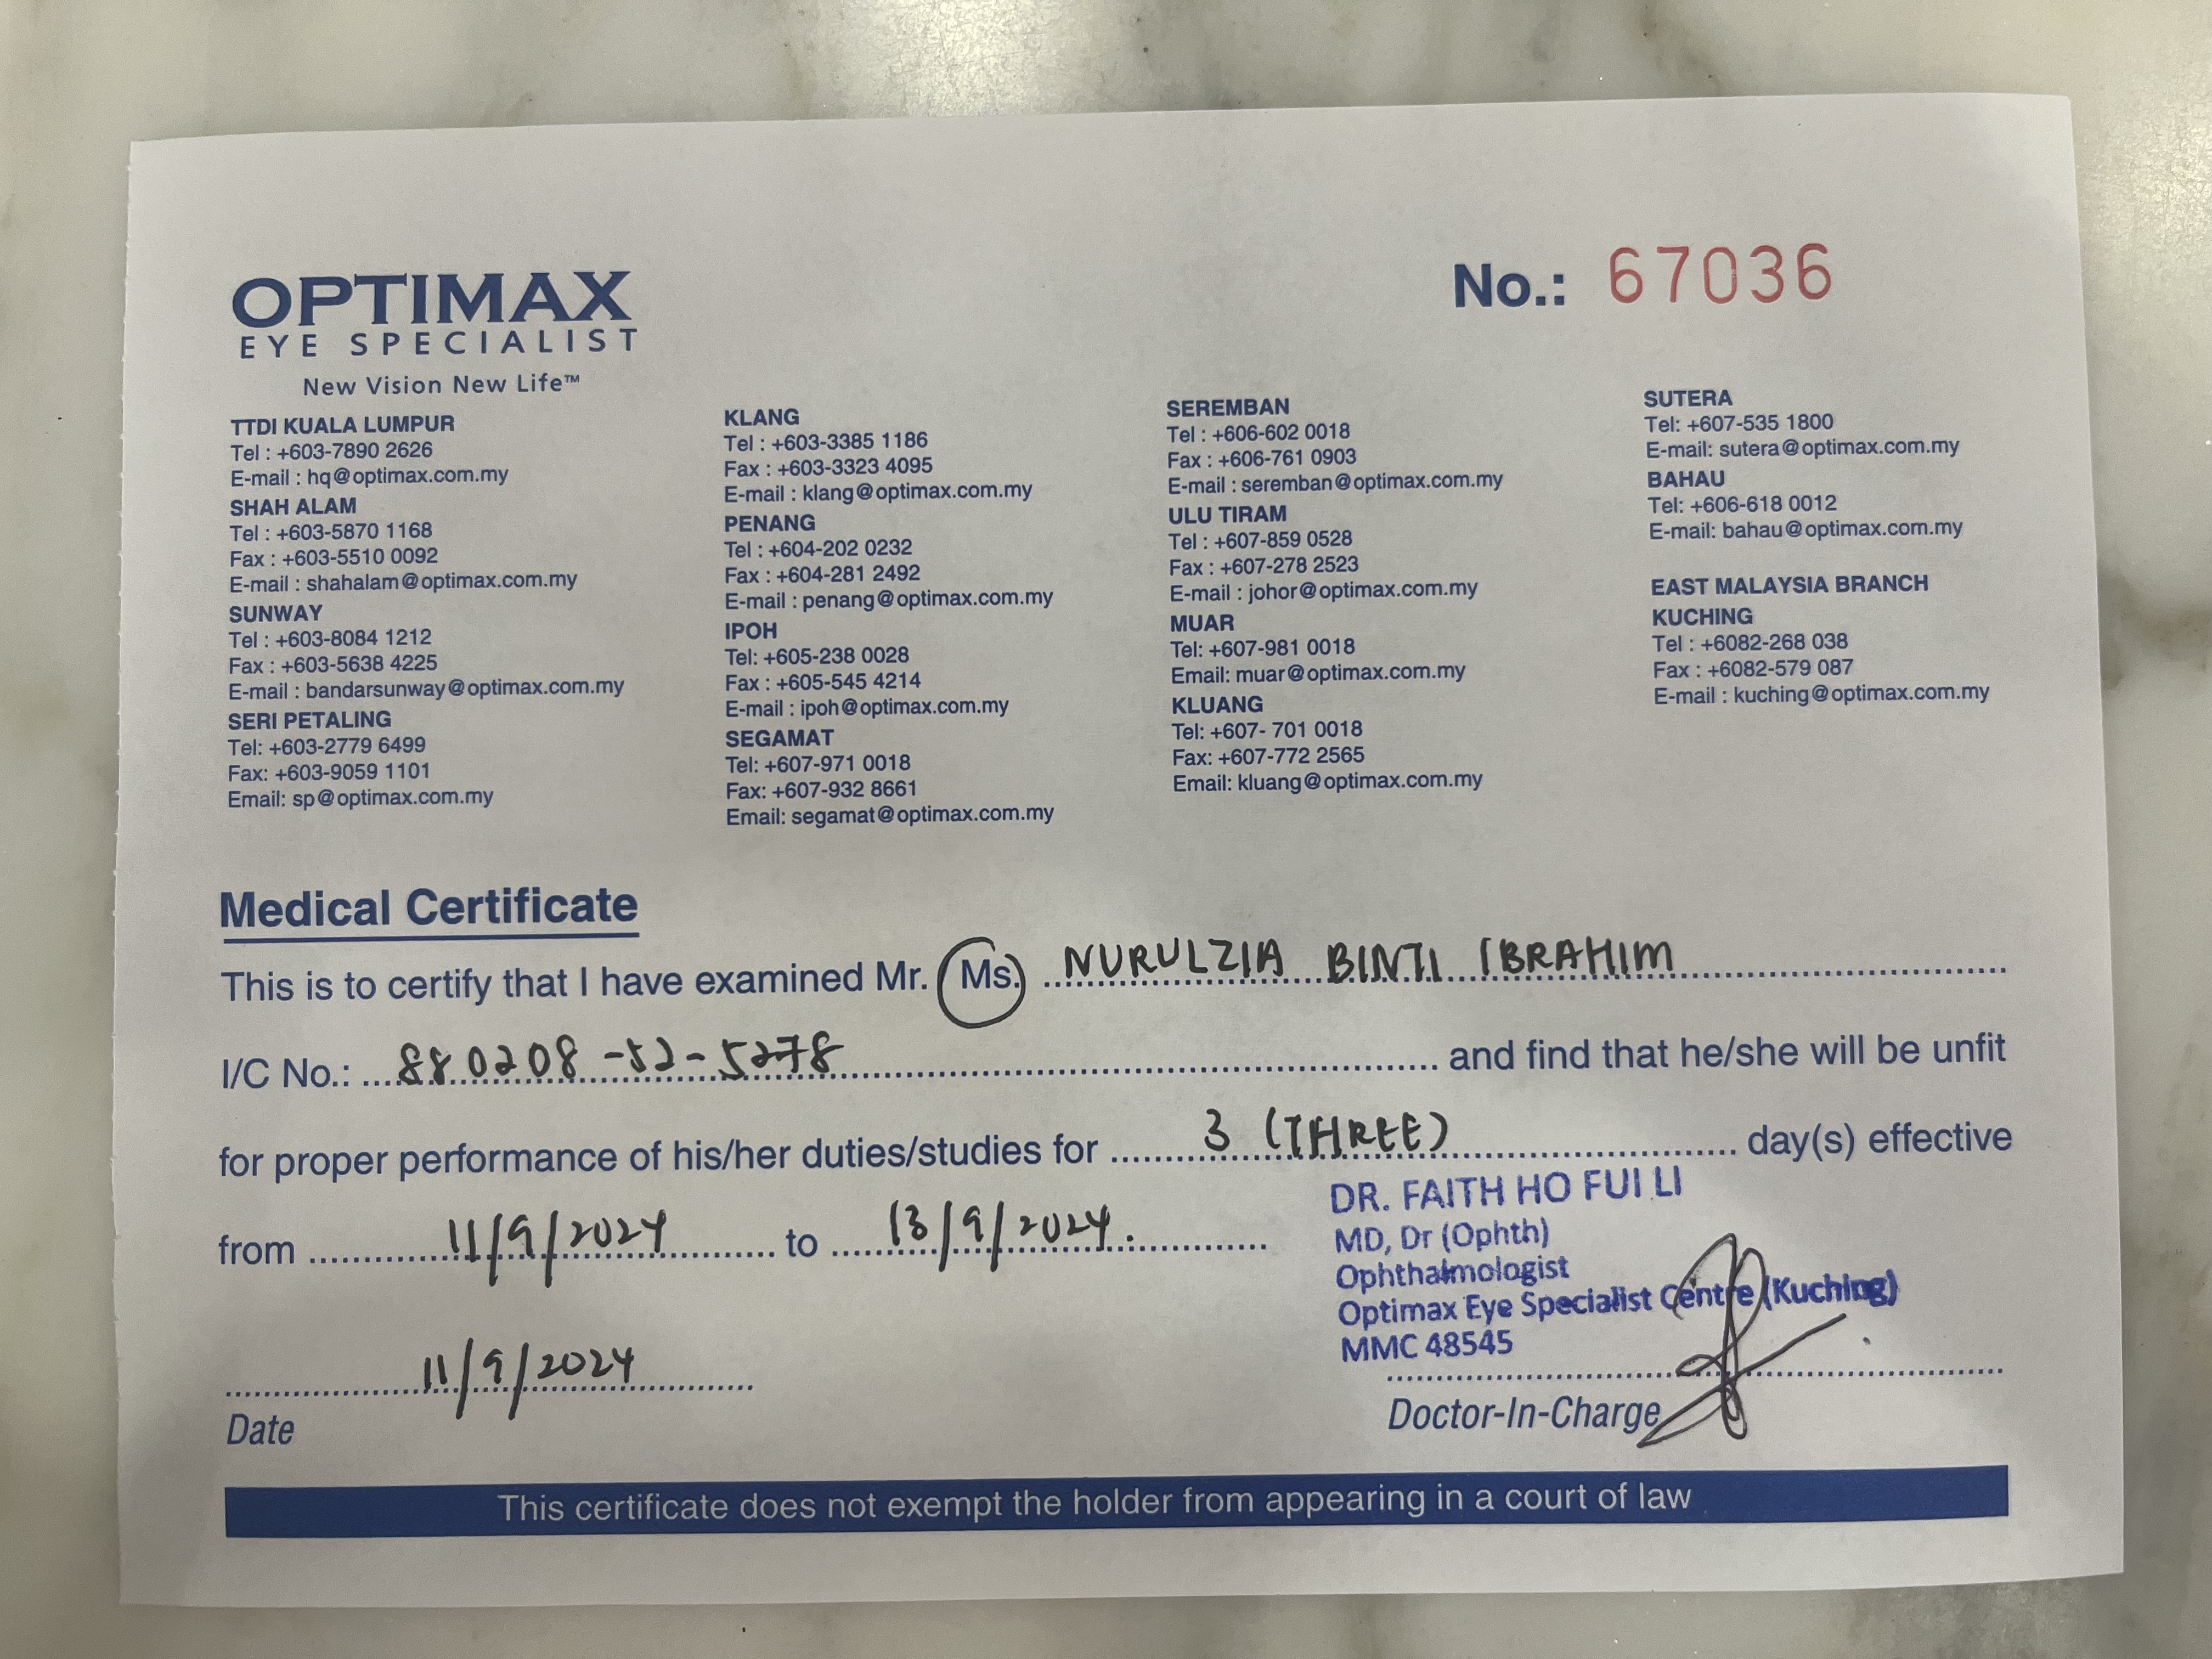 OPTIMAX
EYE SPECIALIST
New Vision New Life™
No.: 67036
TTDI KUALA LUMPUR
Tel : +603-7890 2626
E-mail : hq@optimax.com.my
SHAH ALAM
Tel : +603-5870 1168
Fax : +603-5510 0092
E-mail : shahalam@optimax.com.my
SUNWAY
Tel : +603-8084 1212
Fax : +603-5638 4225
E-mail : bandarsunway@optimax.com.my
SERI PETALING
Tel: +603-2779 6499
Fax: +603-9059 1101
Email: sp@optimax.com.my
KLANG
Tel : +603-3385 1186
Fax : +603-3323 4095
E-mail : klang@optimax.com.my
PENANG
Tel : +604-202 0232
Fax : +604-281 2492
E-mail : penang@optimax.com.my
IPOH
Tel: +605-238 0028
Fax : +605-545 4214
E-mail : ipoh@optimax.com.my
SEGAMAT
Tel: +607-971 0018
Fax: +607-932 8661
Email: segamat@optimax.com.my
SEREMBAN
Tel : +606-602 0018
Fax : +606-761 0903
E-mail : seremban@optimax.com.my
ULU TIRAM
Tel : +607-859 0528
Fax : +607-278 2523
E-mail : johor@optimax.com.my
MUAR
Tel: +607-981 0018
Email: muar@optimax.com.my
KLUANG
Tel: +607- 701 0018
Fax: +607-772 2565
Email: kluang@optimax.com.my
SUTERA
Tel: +607-535 1800
E-mail: sutera@optimax.com.my
BAHAU
Tel: +606-618 0012
E-mail: bahau@optimax.com.my
EAST MALAYSIA BRANCH
KUCHING
Tel : +6082-268 038
Fax : +6082-579 087
E-mail : kuching@optimax.com.my
Medical Certificate
This is to certify that I have examined Mr. Ms. NURULZIA BINTI IBRAHIM
I/C No.: 880208-52-5278 and find that he/she will be unfit
for proper performance of his/her duties/studies for 3 (THREE) day(s) effective
from 11/9/2024 to 13/9/2024.
DR. FAITH HO FUI LI
MD, Dr (Ophth)
Ophthalmologist
Optimax Eye Specialist Centre (Kuching)
MMC 48545
11/9/2024
Date
Doctor-In-Charge
This certificate does not exempt the holder from appearing in a court of law